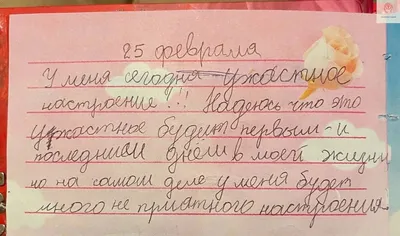 25 февраля
У меня сегодня ужастное
настроение!!! Надеюсь что это
ужастное будит первым-и
последним днём в моей жизни
но на самом деле у меня будет
много не приятного настроения